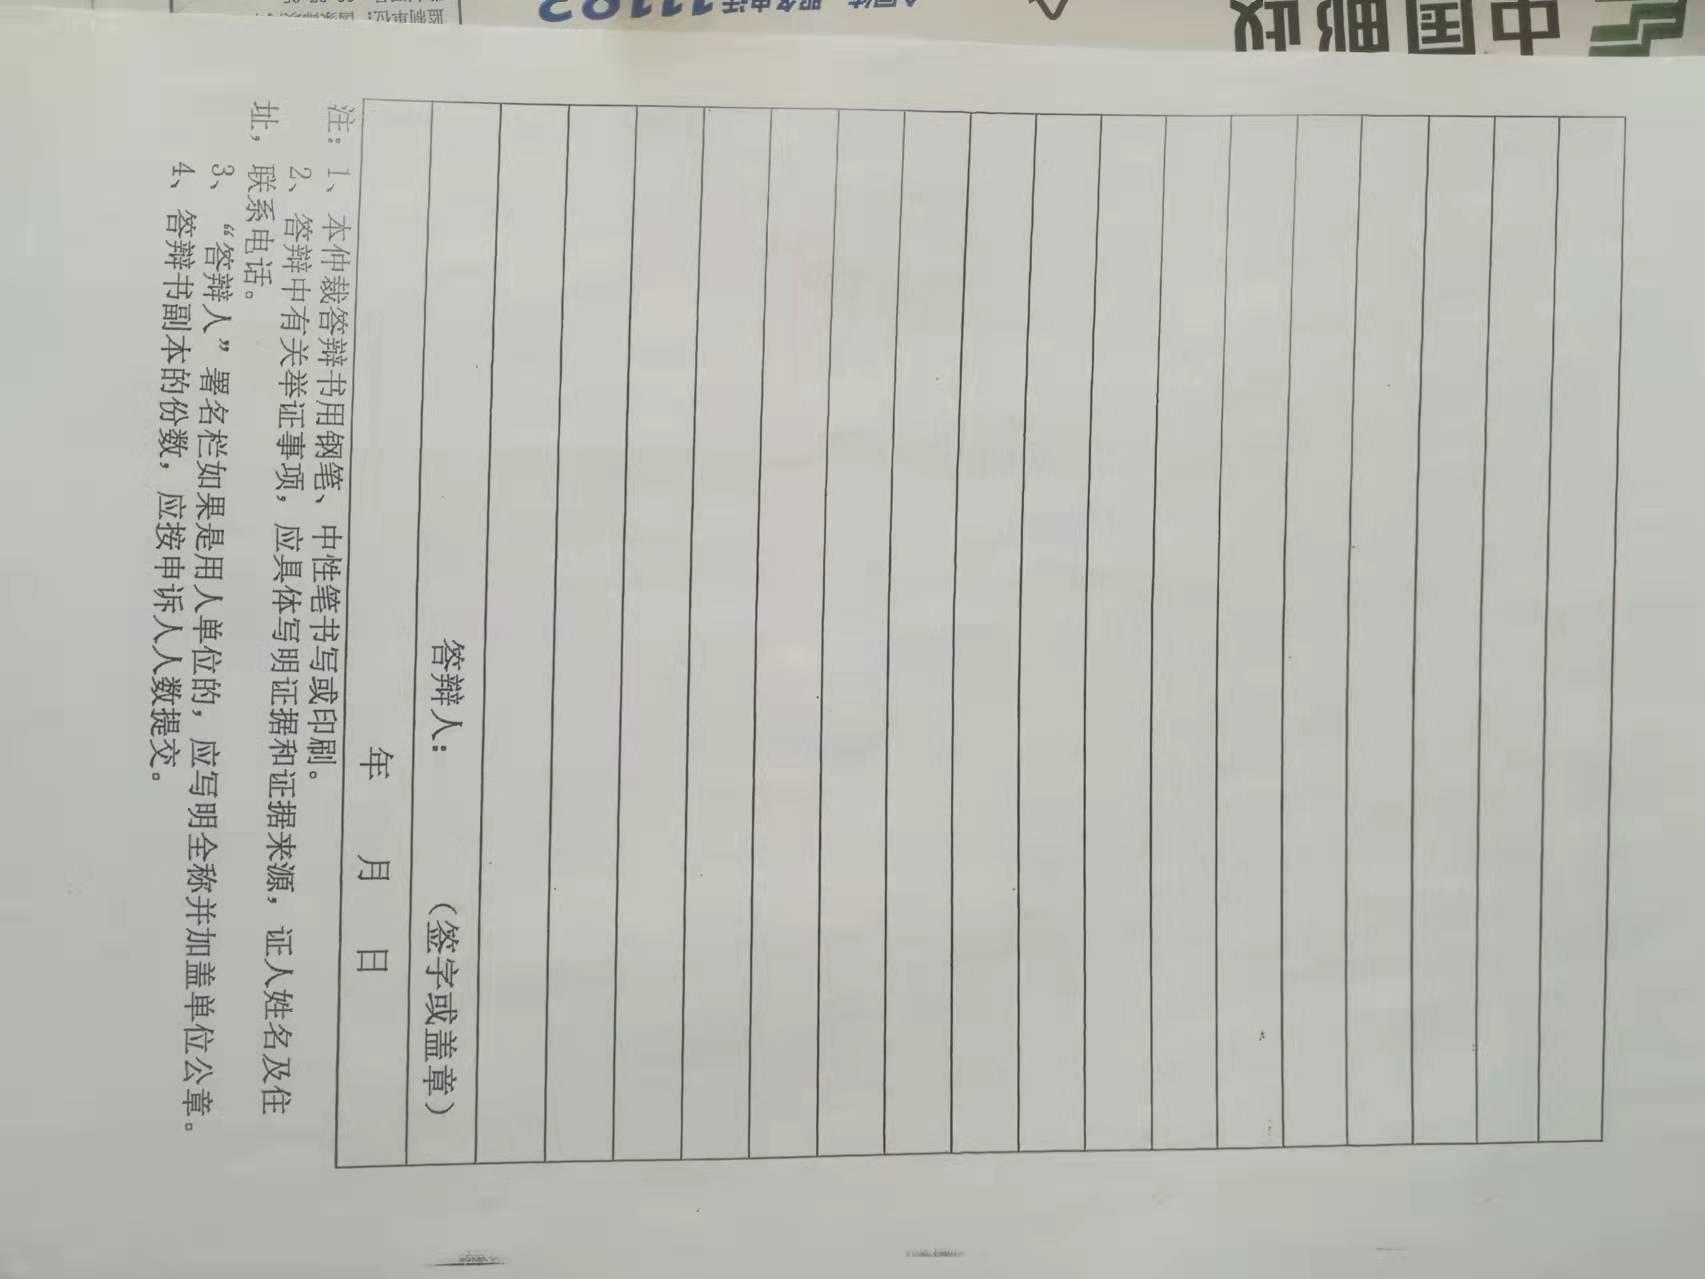 答辩人：　　　（签字或盖章）
年　月　日
注：1、本仲裁答辩书用钢笔、中性笔书写或印刷。
2、答辩中有关举证事项，应具体写明证据和证据来源，证人姓名及住
址，联系电话。
3、“答辩人”署名栏如果是用人单位的，应写明全称并加盖单位公章。
4、答辩书副本的份数，应按申诉人人数提交。
中国邮政